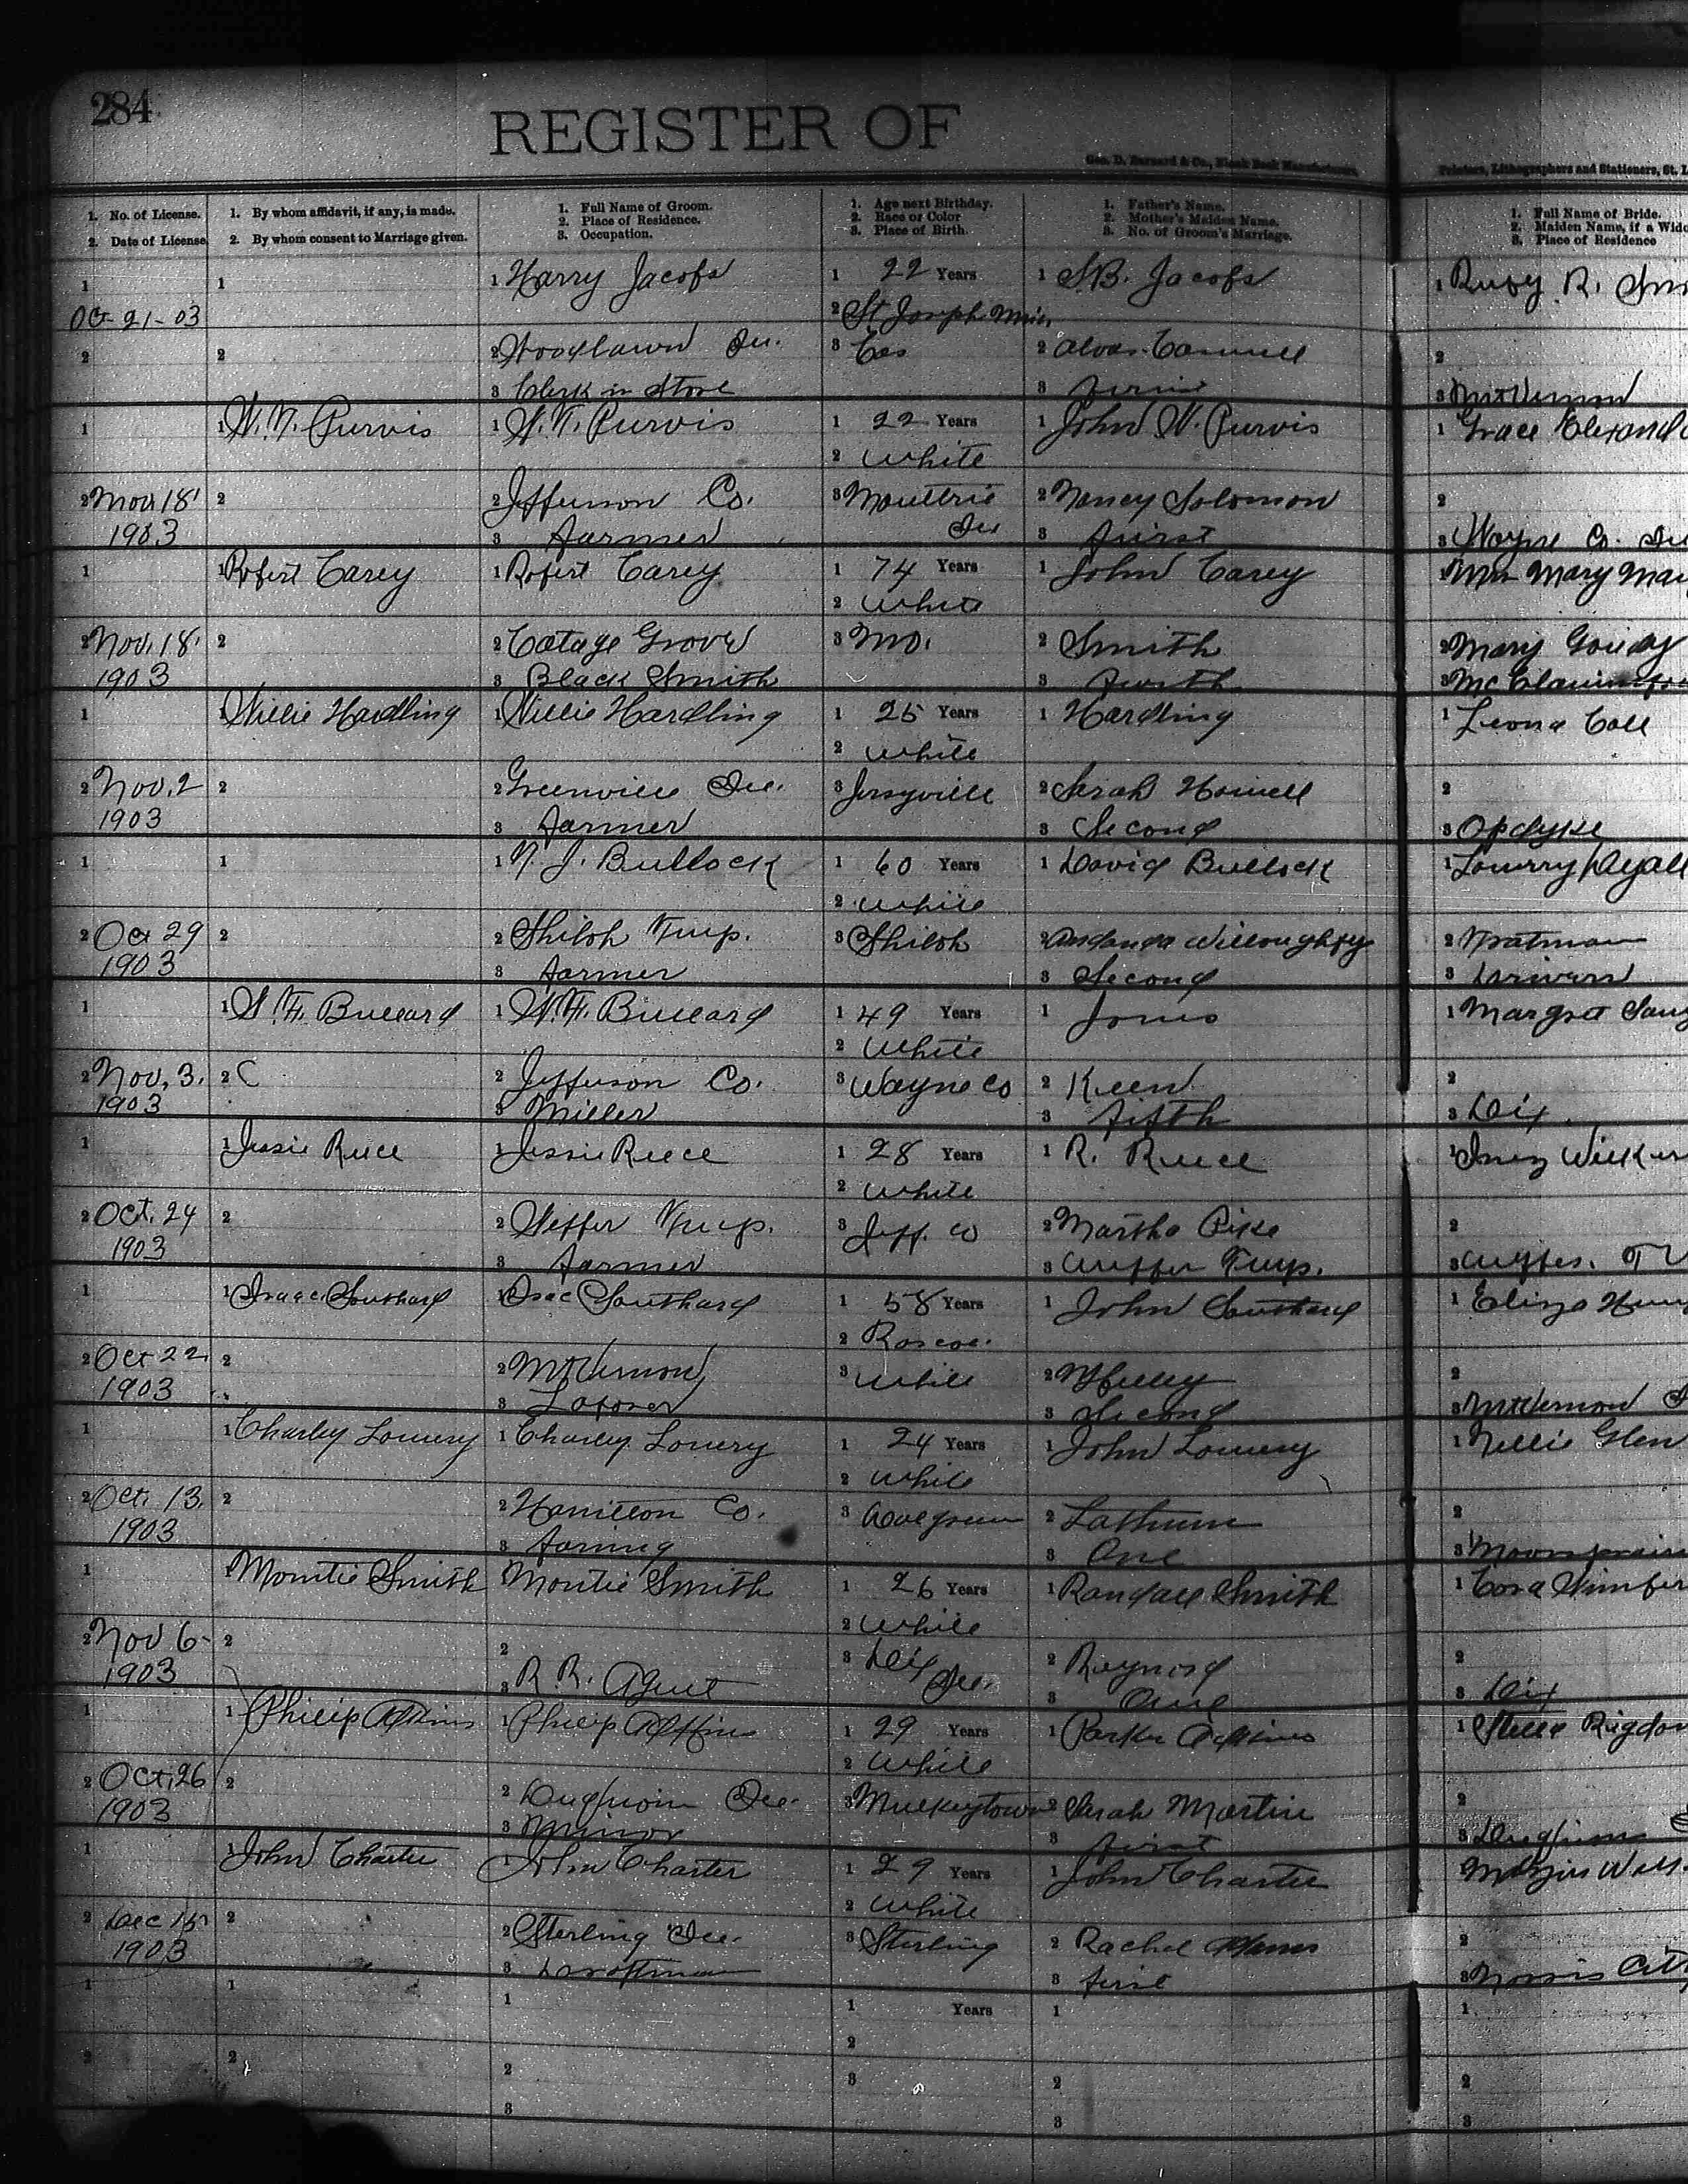 284
REGISTER OF
Geo. D. Barnard & Co., Blank Book Manufacturers,
Printers, Lithographers and Stationers, St. L
1. No. of License.
2. Date of License.
1. By whom affidavit, if any, is made.
2. By whom consent to Marriage given.
1. Full Name of Groom.
2. Place of Residence.
3. Occupation.
1. Age next Birthday.
2. Race or Color
3. Place of Birth.
1. Father's Name.
2. Mother's Maiden Name.
3. No. of Groom's Marriage.
1. Full Name of Bride.
2. Maiden Name, if a Wido
3. Place of Residence
1 1 1 Harry Jacobs 1 22 Years 1 S.B. Jacobs 1 Ruby R.
Oct-21-03 2 St Joseph
2 2 2 Woodlawn Ill. 3 2 2
3 Clerk in Store 3 3 Mt Vernon
1 1 W. T. Purvis 1 W. T. Purvis 1 22 Years 1 John W. Purvis 1 Grace
2 White
2 Nov 18 2 2 Jefferson Co. 3 Moultrie 2 Nancy Solomon 2
1903 3 Farmer Ill 3 First 3 Wayne Co. Ill
1 1 Robert Carey 1 Robert Carey 1 74 Years 1 John Carey 1 Mrs Mary
2 White
2 Nov. 18 2 2 Cotage Grove 3 Mo. 2 Smith 2 Mary
1903 3 Black Smith 3 Fourth 3
1 1 Willie Hardling 1 Willie Hardling 1 25 Years 1 Hardling 1 Leona Call
2 White
2 Nov. 2 2 2 Greenville Ill. 3 Jersyville 2 Sarah Howell 2
1903 3 Farmer 3 Second 3 Opdyke
1 1 1 N. J. Bullock 1 60 Years 1 David Bullock 1
2 White
2 Oct 29 2 2 Shiloh Twp. 3 Shiloh 2 Willoughby 2
1903 3 Farmer 3 Second 3
1 1 W. H. Bullard 1 W. H. Bullard 1 49 Years 1 Jones 1 Margret
2 White
2 Nov, 3. 2 C 2 Jefferson Co. 3 Wayne Co 2 Keen 2
1903 3 Miller 3 Fifth 3 Dix
1 1 Jessie Reece 1 Jessie Reece 1 28 Years 1 R. Reece 1 Inez
2 White
2 Oct. 24 2 2 Twp. 3 Jeff. Co 2 Martha Pike 2
1903 3 Farmer 3 Twp. 3
1 1 Isaac Southard 1 Isac Southard 1 58 Years 1 John Southard 1 Eliza
2 Roscoe.
2 Oct 22 2 2 Mt Vernon 3 White 2 2
1903 3 Laborer 3 Second 3 Mt Vernon
1 1 Charley Lowery 1 Charley Lowery 1 24 Years 1 John Lowery 1 Nellie Glen
2 White
2 Oct. 13. 2 2 Hamilton Co. 3 2 Lathum 2
1903 3 Farming 3 One 3
1 1 Montie Smith 1 Montie Smith 1 26 Years 1 Randall Smith 1 Cora
2 White
2 Nov 6 2 2 3 Dix 2 2
1903 3 R. R. Agent Ill. 3 One 3 Dix
1 1 Philip Adkins 1 Philip Adkins 1 29 Years 1 Parker Adkins 1 Rigdon
2 White
2 Oct, 26 2 2 Duquoin Ill. 3 Mulkeytown 2 Sarah Martin 2
1903 3 Minor 3 First 3 Duquoin
1 1 John Charter 1 John Charter 1 29 Years 1 John Charter
2 White
2 Dec 15 2 2 Sterling Ill. 3 Sterling 2 Rachel 2
1903 3 Draftman 3 First 3 Norris City
1 1 1 1 Years 1 1
2
2 2 2 3 2 2
3 3 3